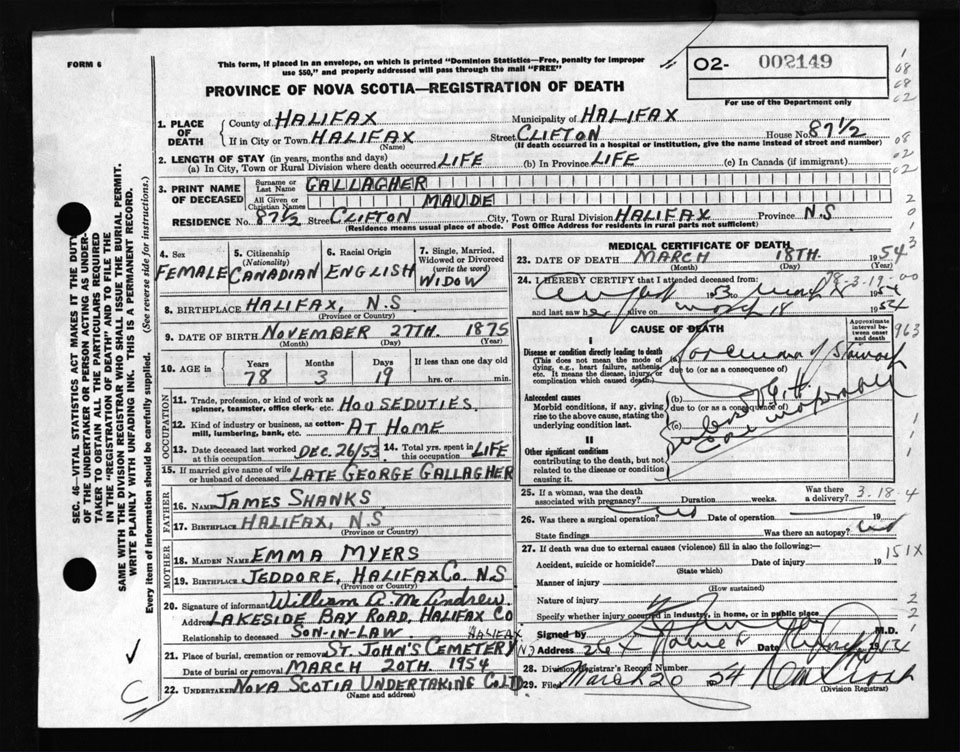 FORM 6
This form, if placed in an envelope, on which is printed "Dominion Statistics—Free, penalty for improper
use $50," and properly addressed will pass through the mail "FREE"
O2- 002149
For use of the Department only
PROVINCE OF NOVA SCOTIA—REGISTRATION OF DEATH
1. PLACE OF DEATH
County of HALIFAX Municipality of HALIFAX
If in City or Town HALIFAX Street CLIFTON House No. 87½
(Name) (If death occurred in a hospital or institution, give the name instead of street and number)
2. LENGTH OF STAY (in years, months and days)
(a) In City, Town or Rural Division where death occurred LIFE (b) In Province LIFE (c) In Canada (if immigrant)
3. PRINT NAME OF DECEASED
Surname or Last Name GALLAGHER
All Given or Christian Names MAUDE
RESIDENCE No. 87½ Street CLIFTON City, Town or Rural Division HALIFAX Province N.S
(Residence means usual place of abode. Post Office Address for residents in rural parts not sufficient)
4. Sex
FEMALE
5. Citizenship (Nationality)
CANADIAN
6. Racial Origin
ENGLISH
7. Single, Married, Widowed or Divorced (write the word)
WIDOW
8. BIRTHPLACE HALIFAX, N.S
(Province or Country)
9. DATE OF BIRTH NOVEMBER 27TH. 1875
(Month) (Day) (Year)
10. AGE in Years Months Days If less than one day old
78 3 19 hrs. or min.
OCCUPATION
11. Trade, profession, or kind of work as
spinner, teamster, office clerk, etc. HOUSEDUTIES.
12. Kind of industry or business, as cotton-
mill, lumbering, bank, etc. AT HOME
13. Date deceased last worked at this occupation DEC. 26/53 14. Total yrs. spent in this occupation LIFE
15. If married give name of wife
or husband of deceased LATE GEORGE GALLAGHER
FATHER
16. NAME JAMES SHANKS
17. BIRTHPLACE HALIFAX, N.S
MOTHER
18. MAIDEN NAME EMMA MYERS
19. BIRTHPLACE JEDDORE, HALIFAX CO. N.S
(Province or Country)
20. Signature of informant William A. McAndrew.
Address LAKESIDE BAY ROAD, HALIFAX CO
Relationship to deceased SON-IN-LAW. HALIFAX
21. Place of burial, cremation or removal ST. JOHN'S CEMETERY
Date of burial or removal MARCH 20TH. 1954
22. UNDERTAKER NOVA SCOTIA UNDERTAKING CO. LTD
(Name and address)
MEDICAL CERTIFICATE OF DEATH
23. DATE OF DEATH MARCH 18TH. 1954
(Month) (Day) (Year)
24. I HEREBY CERTIFY that I attended deceased from: 78-3-19-00
1953 1954
and last saw her alive on March 18 1954
CAUSE OF DEATH
Approximate interval between onset and death
963
I
Disease or condition directly leading to death
(This does not mean the mode of dying, e.g., heart failure, asthenia, etc. It means the disease, injury, or complication which caused death.)
of Stomach
due to (or as a consequence of)
Antecedent causes
Morbid conditions, if any, giving rise to the above cause, stating the underlying condition last.
(b)
due to (or as a consequence of)
(c)
II
Other significant conditions
contributing to the death, but not related to the disease or condition causing it.
25. If a woman, was the death associated with pregnancy? Duration weeks. Was there a delivery? 3-18-4
26. Was there a surgical operation? Date of operation 19
State findings Was there an autopsy?
27. If death was due to external causes (violence) fill in also the following:— 151X
Accident, suicide or homicide? Date of injury 19
(State which)
Manner of injury
(How sustained)
Nature of injury
Specify whether injury occurred in industry, in home, or in public place
Signed by M.D.
Address Date
28. Division Registrar's Record Number
29. Filed March 20 1954
(Division Registrar)
SEC. 46—VITAL STATISTICS ACT MAKES IT THE DUTY
OF THE UNDERTAKER OR PERSON ACTING AS UNDER-
TAKER TO OBTAIN ALL THE PARTICULARS REQUIRED
IN THE "REGISTRATION OF DEATH" AND TO FILE THE
SAME WITH THE DIVISION REGISTRAR WHO SHALL ISSUE THE BURIAL PERMIT.
WRITE PLAINLY WITH UNFADING INK. THIS IS A PERMANENT RECORD.
Every item of information should be carefully supplied. (See reverse side for instructions.)